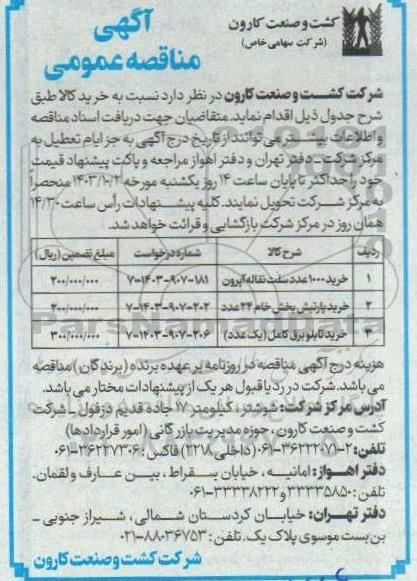 آگهی
مناقصه عمومی
کشت و صنعت کارون
(شرکت سهامی خاص)
شرکت کشت و صنعت کارون در نظر دارد نسبت به خرید کالا طبق
شرح جدول ذیل اقدام نماید. متقاضیان جهت دریافت اسناد مناقصه
و اطلاعات بیشتر می توانند از تاریخ درج آگهی به جز ایام تعطیل به
مرکز شرکت - دفتر تهران و دفتر اهواز مراجعه و پاکت پیشنهاد قیمت
خود را حداکثر تا پایان ساعت ۱۴ روز یکشنبه مورخه ۱۴۰۳/۱۰/۲ منحصراً
به مرکز شرکت تحویل نمایند. کلیه پیشنهادات رأس ساعت ۱۴/۳۰
همان روز در مرکز شرکت بازگشایی و قرائت خواهد شد.
ردیف شرح کالا شماره درخواست مبلغ تضمین (ریال)
۱ خرید ۱۰۰۰ عدد سلت نقاله آپرون ۷-۱۴۰۳-۹۰۷-۱۸۱ ۲۰۰/۰۰۰/۰۰۰
۲ خرید پارتیش پخش خام ۲۴ عدد ۷-۱۴۰۳-۹۰۷-۲۰۲ ۲۰۰/۰۰۰/۰۰۰
۳ خرید تابلو برق کامل (یک عدد) ۷-۱۴۰۳-۹۰۷-۲۰۶ ۳۰۰/۰۰۰/۰۰۰
هزینه درج آگهی مناقصه در روزنامه بر عهده برنده (برندگان) مناقصه
می باشد. شرکت در رد یا قبول هر یک از پیشنهادات مختار می باشد.
آدرس مرکز شرکت: شوشتر، کیلومتر ۱۷ جاده قدیم دزفول - شرکت
کشت و صنعت کارون، حوزه مدیریت بازرگانی (امور قراردادها)
تلفن: ۲-۳۶۲۲۲۰۷۱-۰۶۱ (داخلی ۲۲۱۸) فاکس: ۳۶۲۲۷۳۰۶-۰۶۱
دفتر اهواز: امانیه، خیابان سقراط، بین عارف و لقمان.
تلفن: ۳۳۳۳۵۸۵۰ و ۳۳۳۳۸۲۲۲-۰۶۱
دفتر تهران: خیابان کردستان شمالی، شیراز جنوبی -
بن بست موسوی پلاک یک. تلفن: ۸۸۰۳۶۷۵۳-۰۲۱
شرکت کشت و صنعت کارون